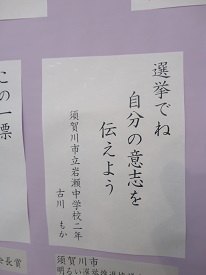 選挙でね
自分の意志を
伝えよう
須賀川市立岩瀬中学校二年
古川　もか
須賀川市
明るい選挙推進協議会
この一票
会長賞